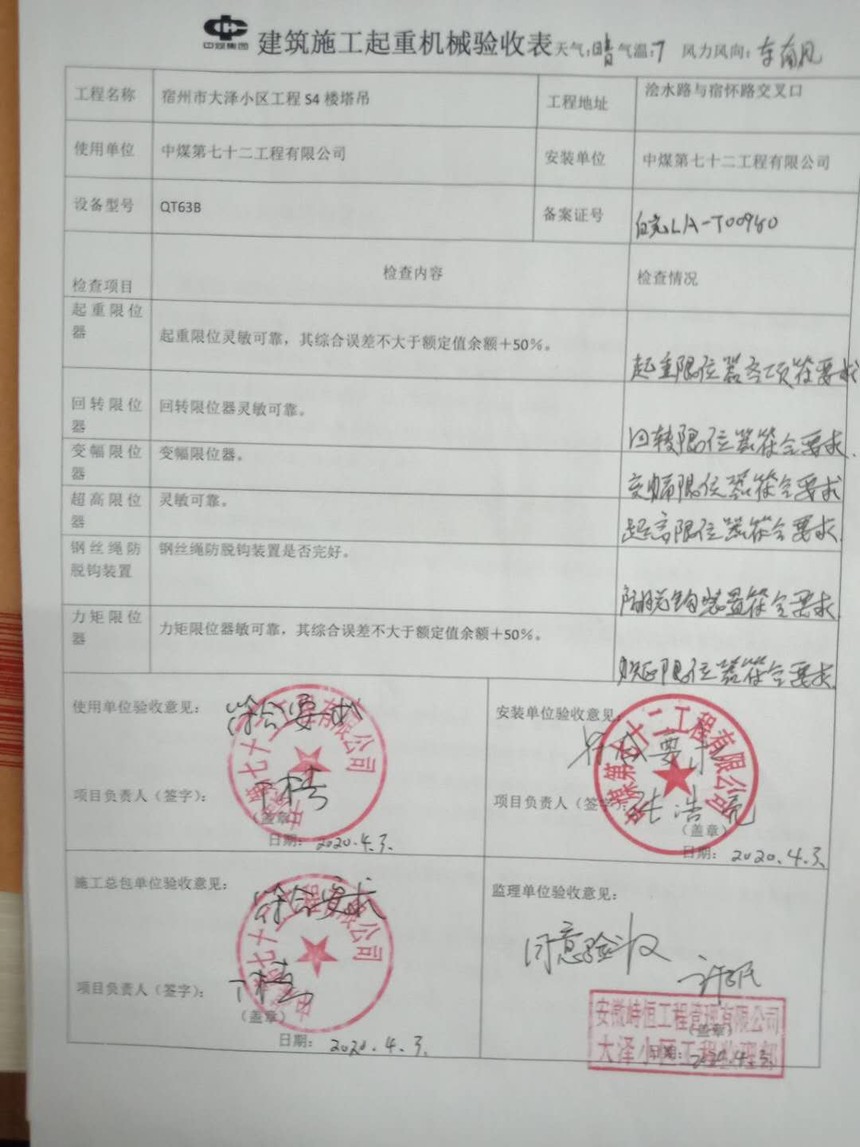 中煤集团 建筑施工起重机械验收表 天气:晴 气温:7 风力风向:东南风
工程名称 宿州市大泽小区工程 S4 楼塔吊 工程地址 浍水路与宿怀路交叉口
使用单位 中煤第七十二工程有限公司 安装单位 中煤第七十二工程有限公司
设备型号 QT63B 备案证号
检查项目 检查内容 检查情况
起重限位
器
起重限位灵敏可靠，其综合误差不大于额定值余额＋50%。
起重限位器各项符要求
回转限位
器
回转限位器灵敏可靠。
回转限位器符合要求.
变幅限位
器
变幅限位器。
变幅限位器符合要求
超高限位
器
灵敏可靠。
超高限位器符合要求.
钢丝绳防
脱钩装置
钢丝绳防脱钩装置是否完好。
防脱钩装置符合要求.
力矩限位
器
力矩限位器敏可靠，其综合误差不大于额定值余额＋50%。
限位器符合要求.
使用单位验收意见： 符合要求
项目负责人（签字）：
（盖章）
日期： 2020.4.3.
安装单位验收意见 符合要求
项目负责人（签字）： 张浩亮
（盖章）
日期： 2020.4.3
施工总包单位验收意见： 符合要求
项目负责人（签字）：
（盖章）
日期： 2020.4.3.
监理单位验收意见：
同意验收
安徽峙恒工程管理有限公司
（盖章）
大泽小区工程监理部
日期： 2020.4.3.